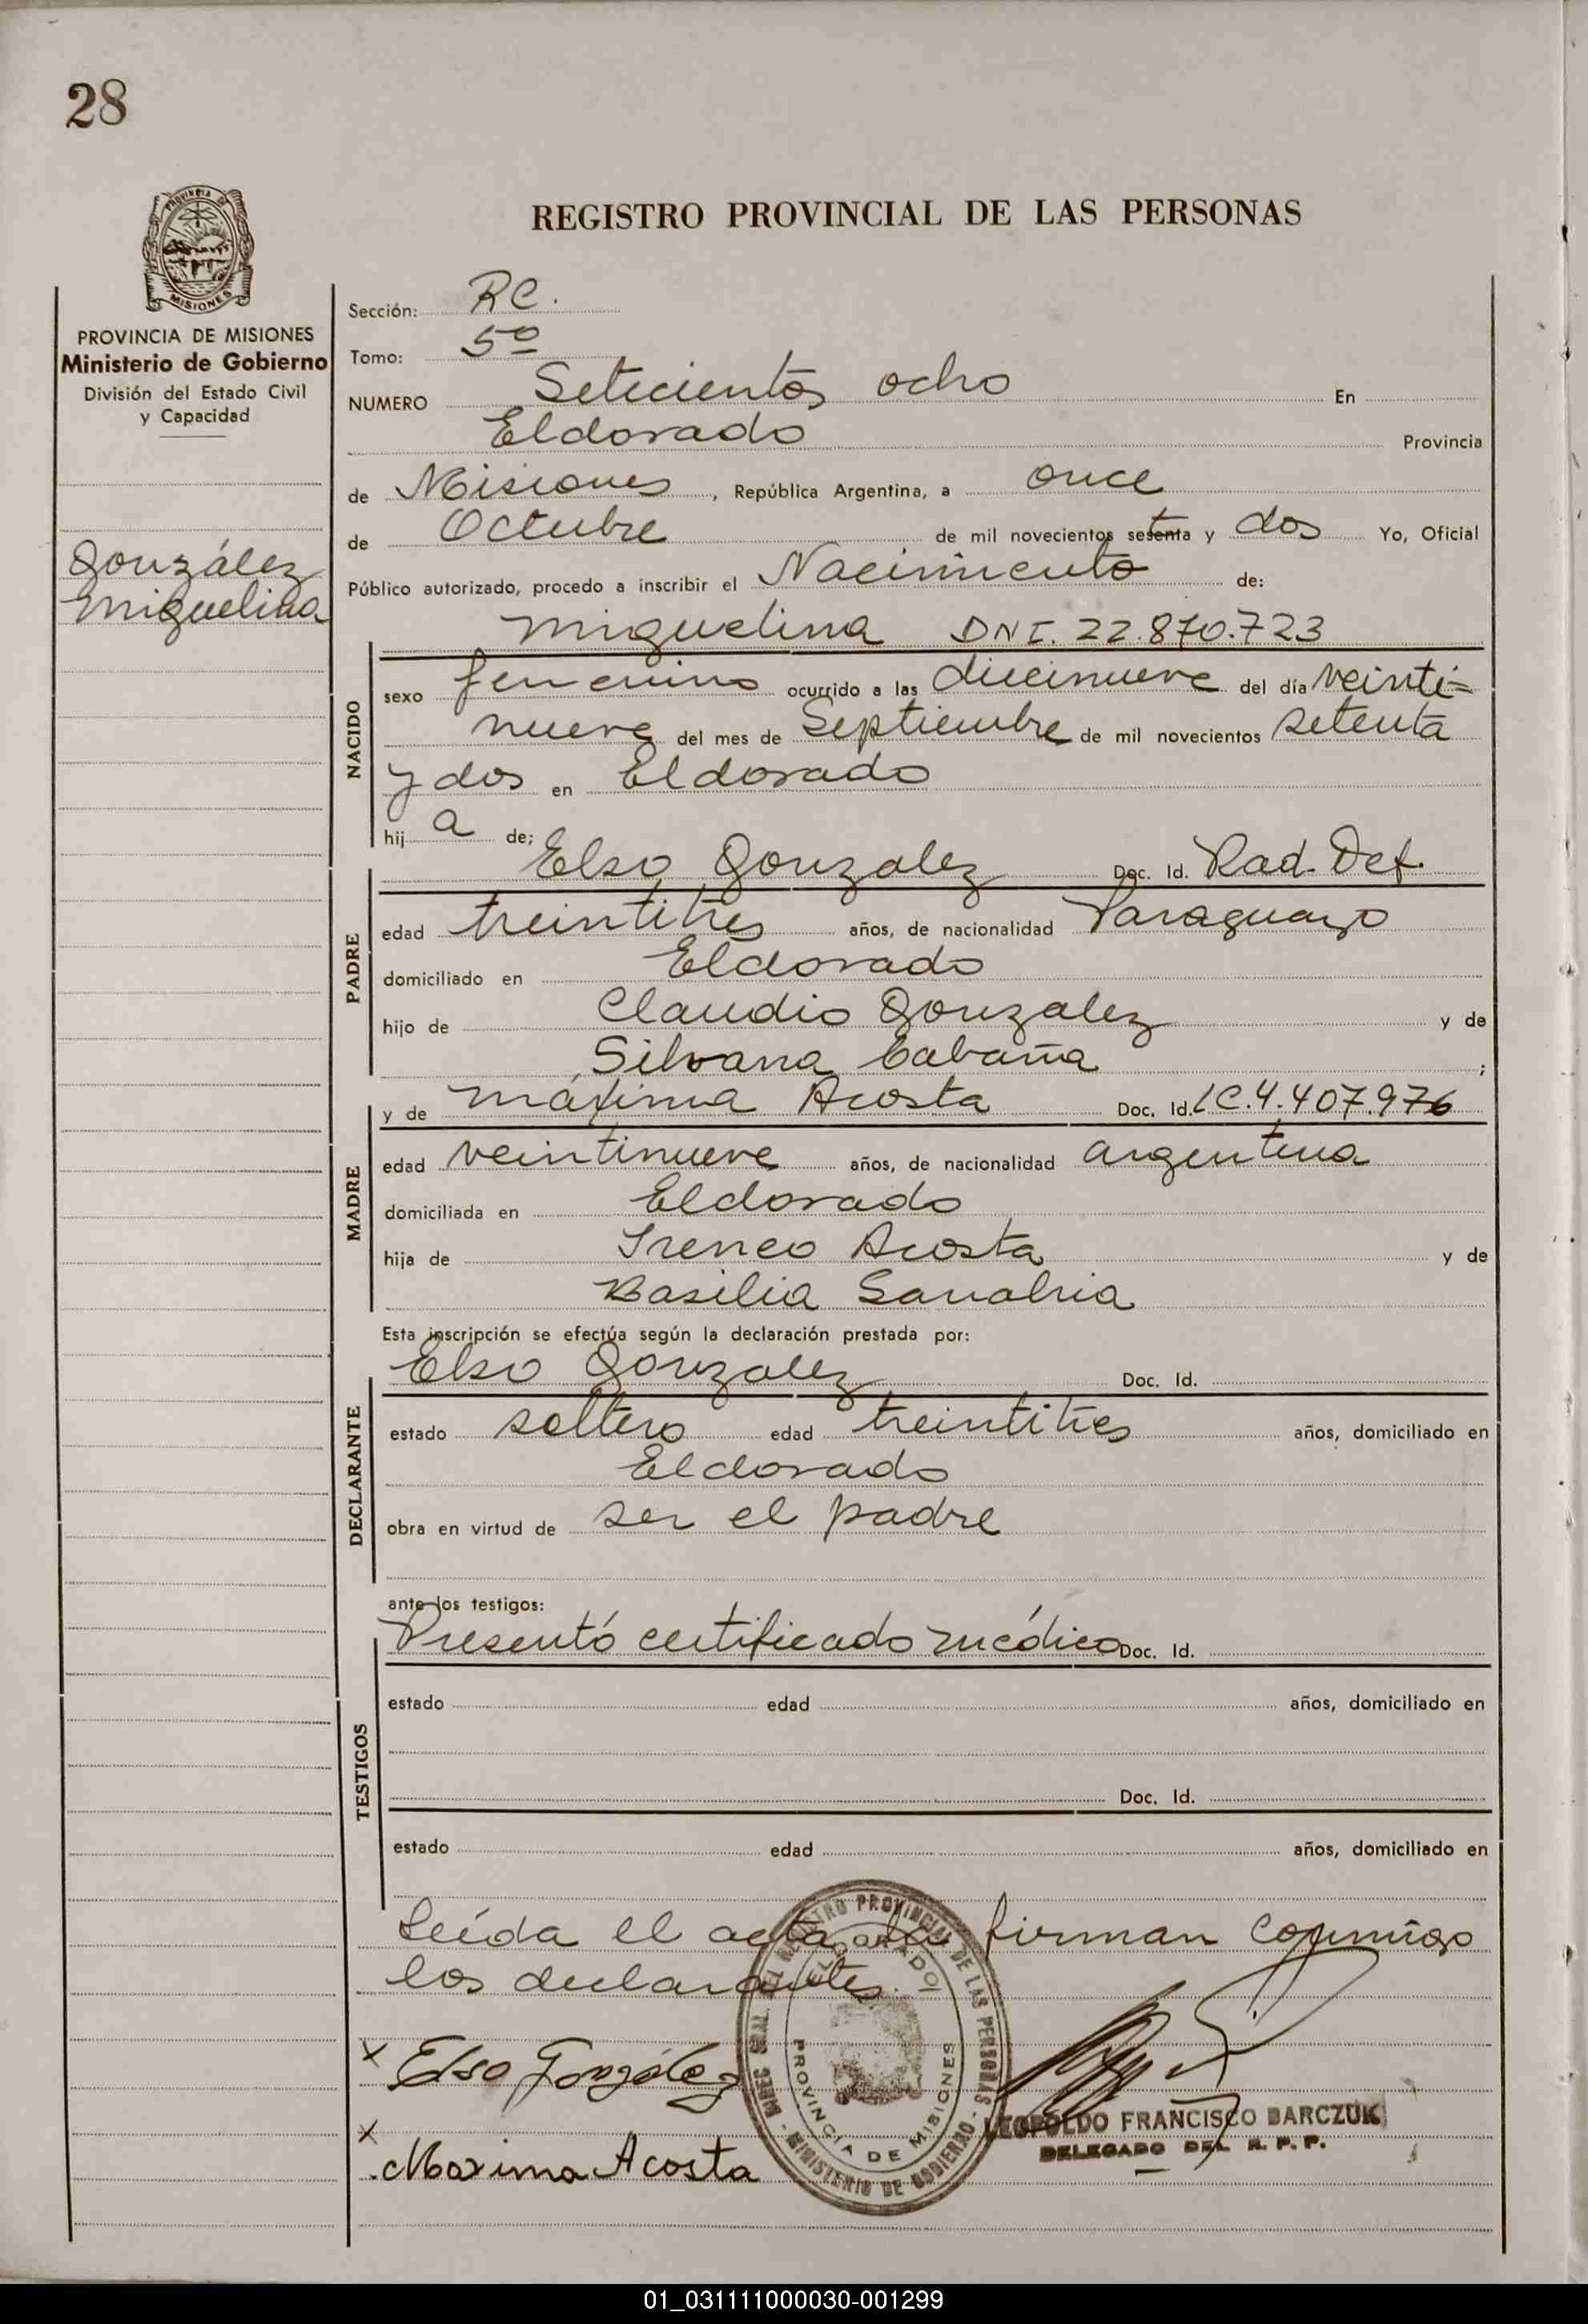 28
PROVINCIA DE
MISIONES
PROVINCIA DE MISIONES
Ministerio de Gobierno
División del Estado Civil
y Capacidad
González
Miguelina
REGISTRO PROVINCIAL DE LAS PERSONAS
Sección: RC.
Tomo: 5º
NUMERO Setecientos ocho En
Eldorado Provincia
de Misiones, República Argentina, a once
de Octubre de mil novecientos setenta y dos Yo, Oficial
Público autorizado, procedo a inscribir el Nacimiento de:
Miguelina DNI. 22.870.723
NACIDO
sexo femenino ocurrido a las diecinueve del día veinti=
nueve del mes de Septiembre de mil novecientos setenta
y dos en Eldorado
hij a de;
Elso Gonzalez Doc. Id. Rad. Def.
PADRE
edad treintitres años, de nacionalidad Paraguayo
domiciliado en Eldorado
hijo de Claudio Gonzalez y de
Silvana Cabaña ;
y de Máxima Acosta Doc. Id. LC.4.407.976
MADRE
edad veintinueve años, de nacionalidad argentina
domiciliada en Eldorado
hija de Ireneo Acosta y de
Basilia Sanabria
Esta inscripción se efectúa según la declaración prestada por:
Elso Gonzalez Doc. Id.
DECLARANTE
estado soltero edad treintitres años, domiciliado en
Eldorado
obra en virtud de ser el padre
ante los testigos:
Presentó certificado médico Doc. Id.
TESTIGOS
estado edad años, domiciliado en
Doc. Id.
estado edad años, domiciliado en
Leída el acta la firman conmigo
los declarantes.
REGISTRO PROVINCIAL DE LAS PERSONAS - MINISTERIO DE GOBIERNO
ELDORADO
PROVINCIA DE MISIONES
x Elso González
LEOPOLDO FRANCISCO BARCZUK
DELEGADO DEL R. P. P.
x
Maxima Acosta
01_031111000030-001299